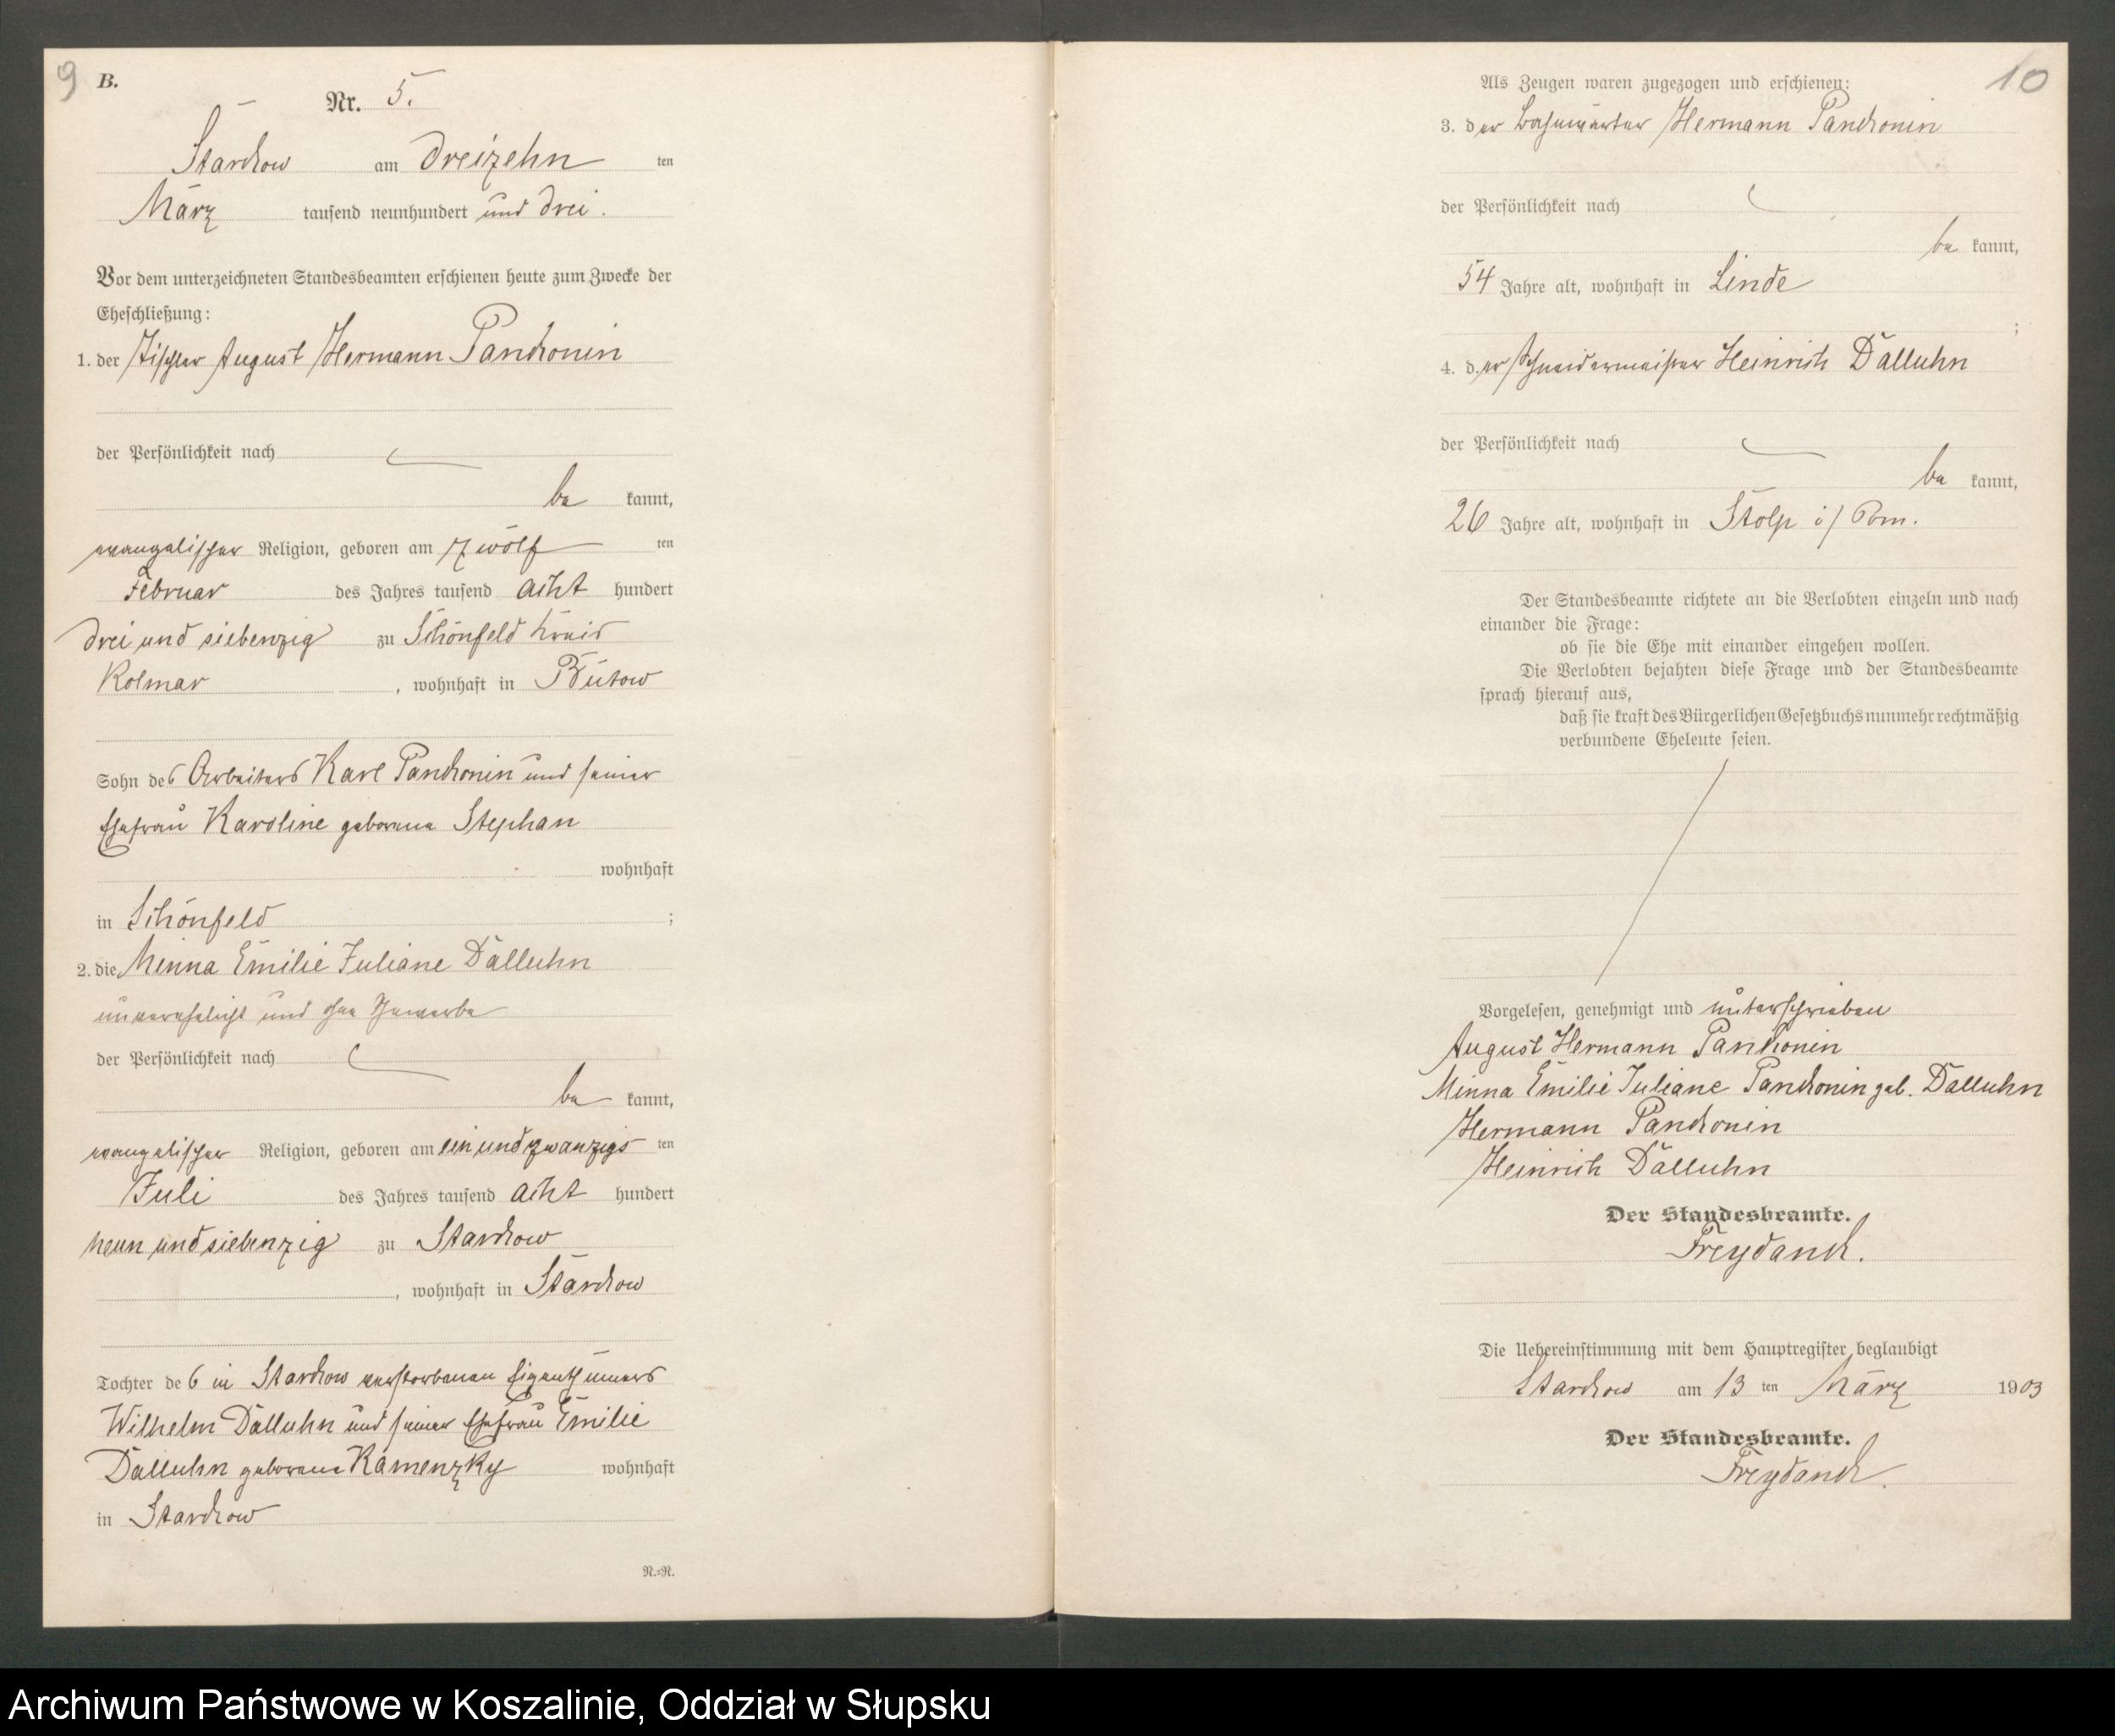 9
B.
Nr. 5.
Starckow am dreizehn ten
März tausend neunhundert und drei.
Vor dem unterzeichneten Standesbeamten erschienen heute zum Zwecke der
Eheschließung:
1. der Tischler August Hermann Panckonin
der Persönlichkeit nach
be kannt,
evangelischer Religion, geboren am zwölf ten
Februar des Jahres tausend acht hundert
drei und siebenzig zu Schönfeld Kreis
Kolmar, wohnhaft in Bütow
Sohn des Arbeiters Karl Panckonin und seiner
Ehefrau Karoline geborene Stephan
wohnhaft
in Schönfeld ;
2. die Minna Emilie Juliane Dalluhn
unverehelicht und ohne Gewerbe
der Persönlichkeit nach
be kannt,
evangelischer Religion, geboren am ein und zwanzigs ten
Juli des Jahres tausend acht hundert
neun und siebenzig zu Starckow
, wohnhaft in Starckow
Tochter des in Starckow verstorbenen Eigenthümers
Wilhelm Dalluhn und seiner Ehefrau Emilie
Dalluhn geborene Kamenzky wohnhaft
in Starckow
N.=N.
10
Als Zeugen waren zugezogen und erschienen:
3. der Bahnwärter Hermann Panckonin
der Persönlichkeit nach
be kannt,
54 Jahre alt, wohnhaft in Linde
;
4. der Schneidermeister Heinrich Dalluhn
der Persönlichkeit nach
be kannt,
26 Jahre alt, wohnhaft in Stolp i/ Pom.
Der Standesbeamte richtete an die Verlobten einzeln und nach
einander die Frage:
ob sie die Ehe mit einander eingehen wollen.
Die Verlobten bejahten diese Frage und der Standesbeamte
sprach hierauf aus,
daß sie kraft des Bürgerlichen Gesetzbuchs nunmehr rechtmäßig
verbundene Eheleute seien.
Vorgelesen, genehmigt und unterschrieben
August Hermann Panckonin
Minna Emilie Juliane Panckonin geb. Dalluhn
Hermann Panckonin
Heinrich Dalluhn
Der Standesbeamte.
Freydanck.
Die Uebereinstimmung mit dem Hauptregister beglaubigt
Starckow am 13 ten März 1903
Der Standesbeamte.
Freydanck.
Archiwum Państwowe w Koszalinie, Oddział w Słupsku